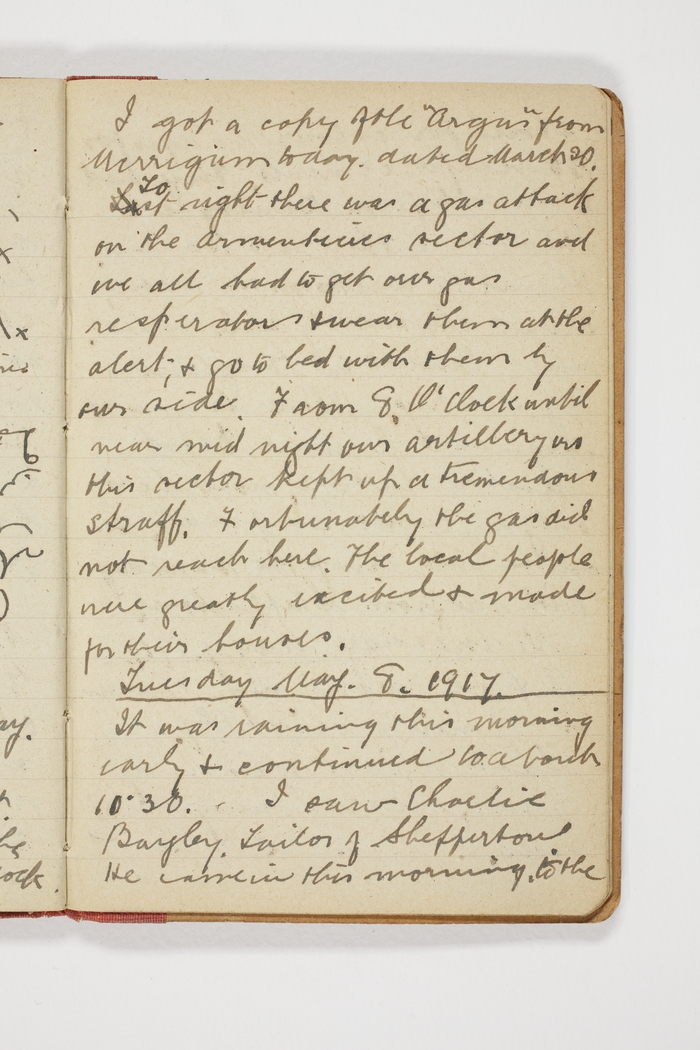 I got a copy of the "Argus" from
Merrigum today. dated March 20.
To night there was a gas attack
on the Armentieres sector and
we all had to get our gas
respirators & wear them at the
alert, & go to bed with them by
our side. From 8. O'Clock until
near mid night our artillery on
this sector kept up a tremendous
straff. Fortunately the gas did
not reach here. The local people
were greatly excited & made
for their houses.
Tuesday May. 8. 1917.
It was raining this morning
early & continued to about
10.30. I saw Charlie
Bayley. Tailor of Shepparton
He came in this morning. to the
ay.
he
ock.